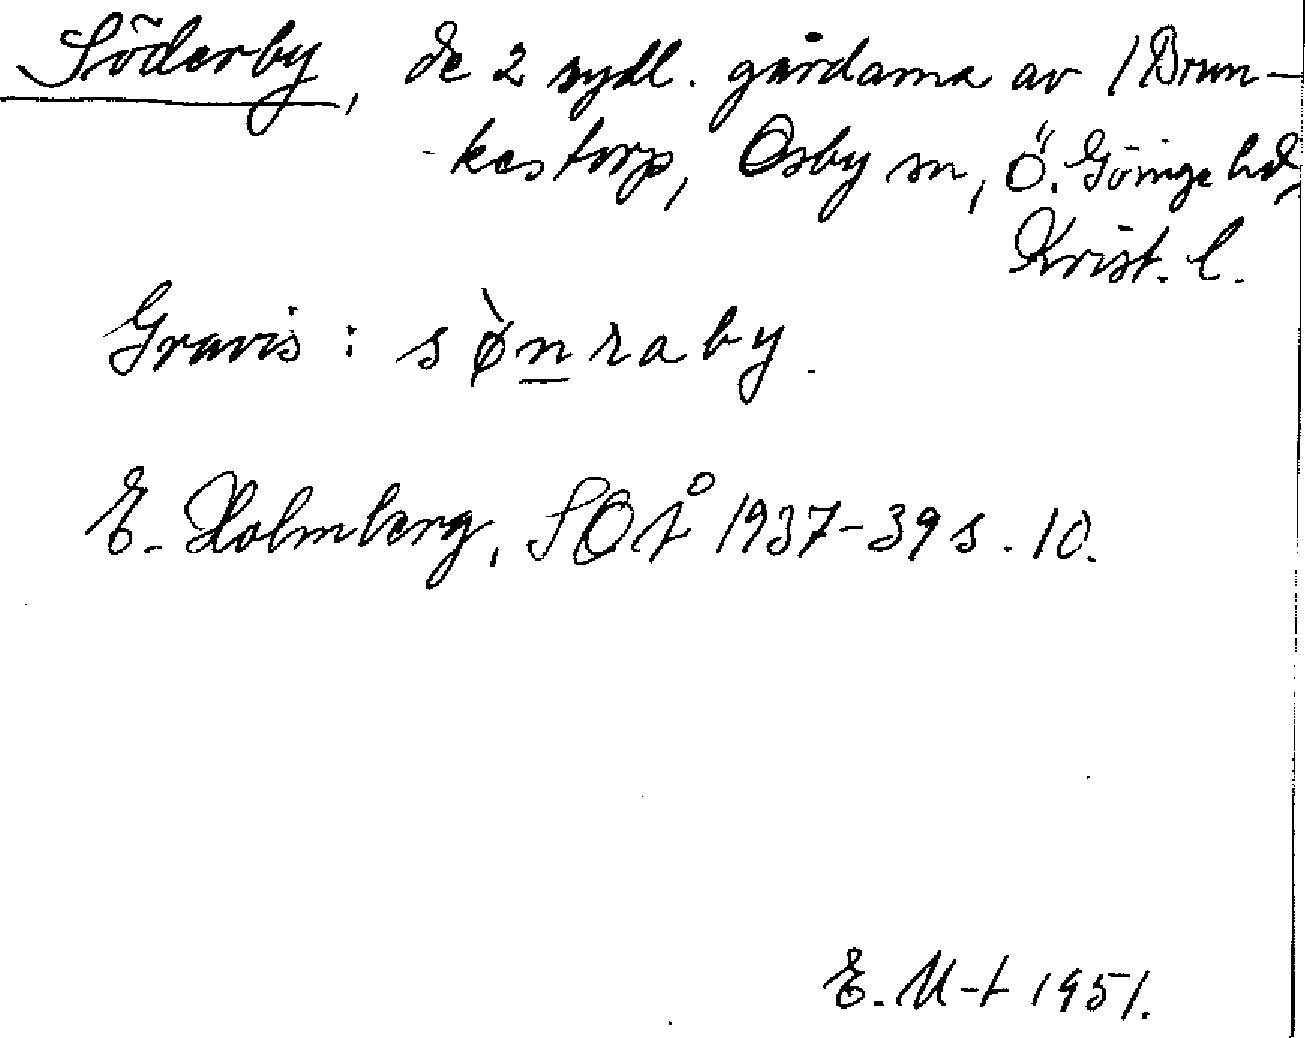 Söderby, de 2 sydl. gårdarna av /Brun-
-kestorp, Osby sn, Ö. Göinge hd,
Krist. l.
Gravis: sø̀nraby.
E. Holmberg, SOÅ 1937-39 s. 10.
E. M-t 1951.